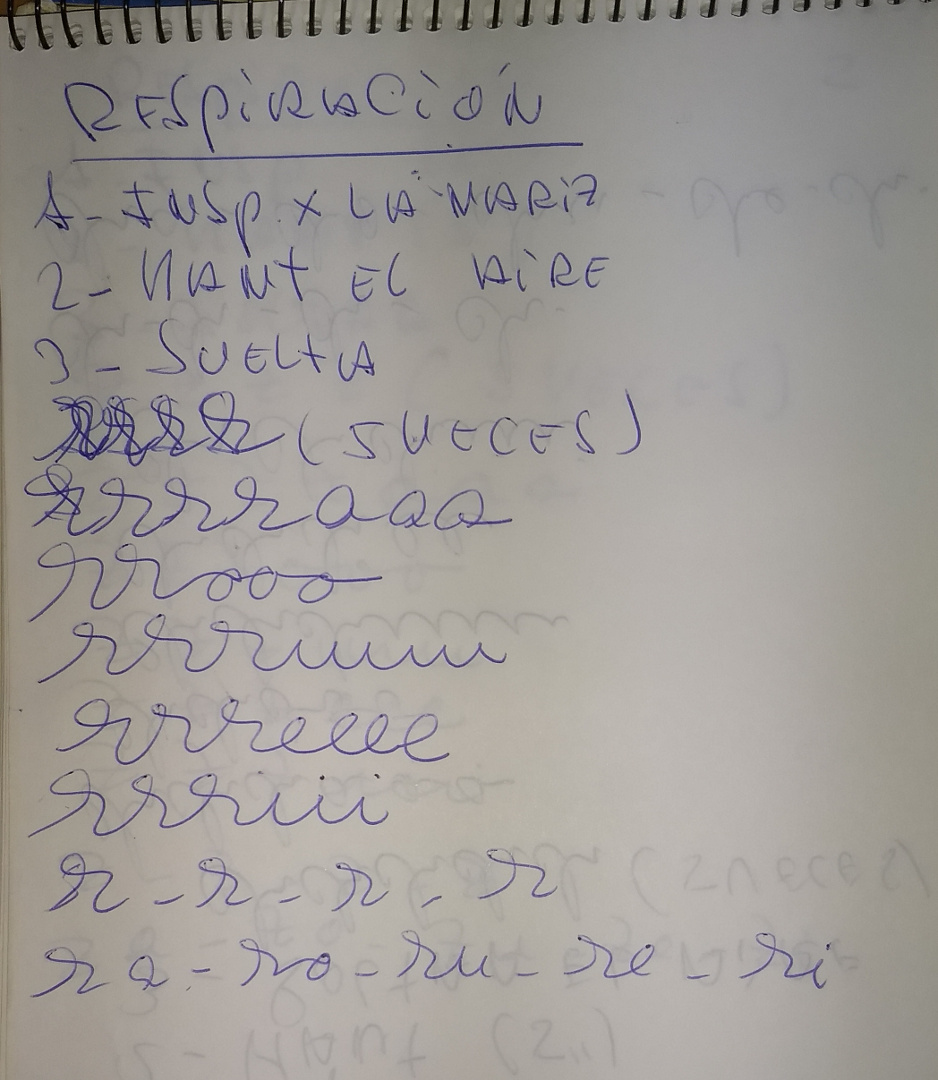 RESPIRACIÓN
1- INSP. x LA NARIZ
2- MANT EL AIRE
3- SUELTA
(5 VECES)
rrrraaa
rrooo
rrruuu
rrreeee
rrriii
r - r - r - r
ra - ro - ru - re - ri